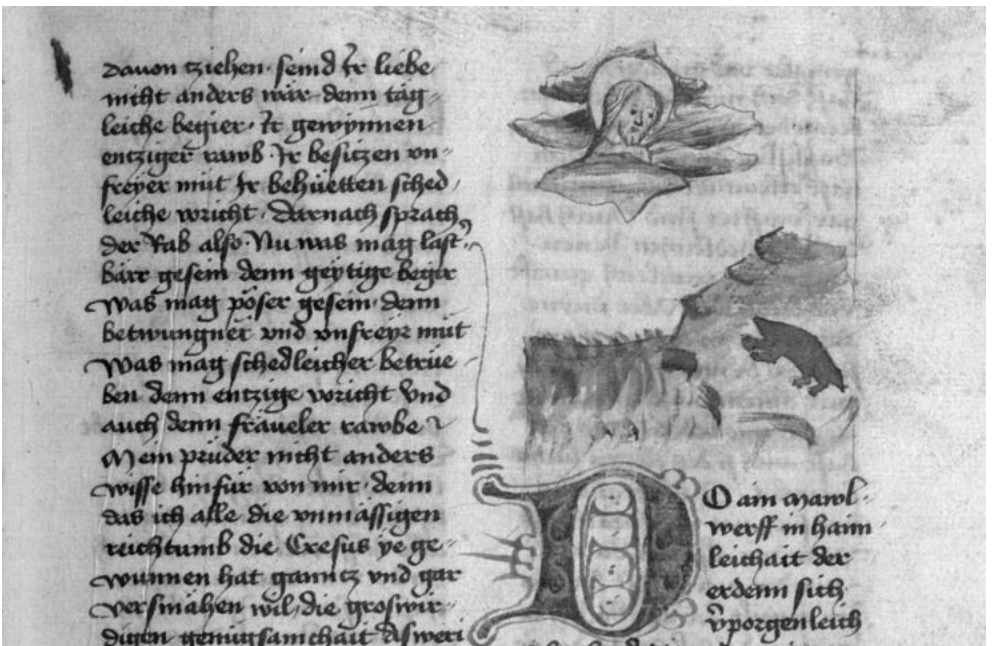 Davon ziehen · seind Ir liebe
nicht anders wär denn täg„
leiche begier · Ir gewynnen
entziger rawb · Ir besitzen vn„
freyer mut Ir behüetten sched„
leiche voricht · Darnach sprach
der Rab also · Nu was mag last„
bärr gesein denn geytige begir
Was mag pöser gesein · denn
betwungner vnd vnfreyr mut
Was mag schedleicher betrüe
ben denn entzige voricht Vnd
auch denn fräueler rawbe
Mein prüder nicht anders
wisse hinfür von mir · denn
das ich alle die vnmässigen
reichtumb die Cresus ye ge„
wunnen hat ganntz vnd gar
versmähen wil · die groswir„
digen genugsamchait Asweri
DO ain Mawl„
werff in haim
leichait der
erdenn sich
v̄porgenleich